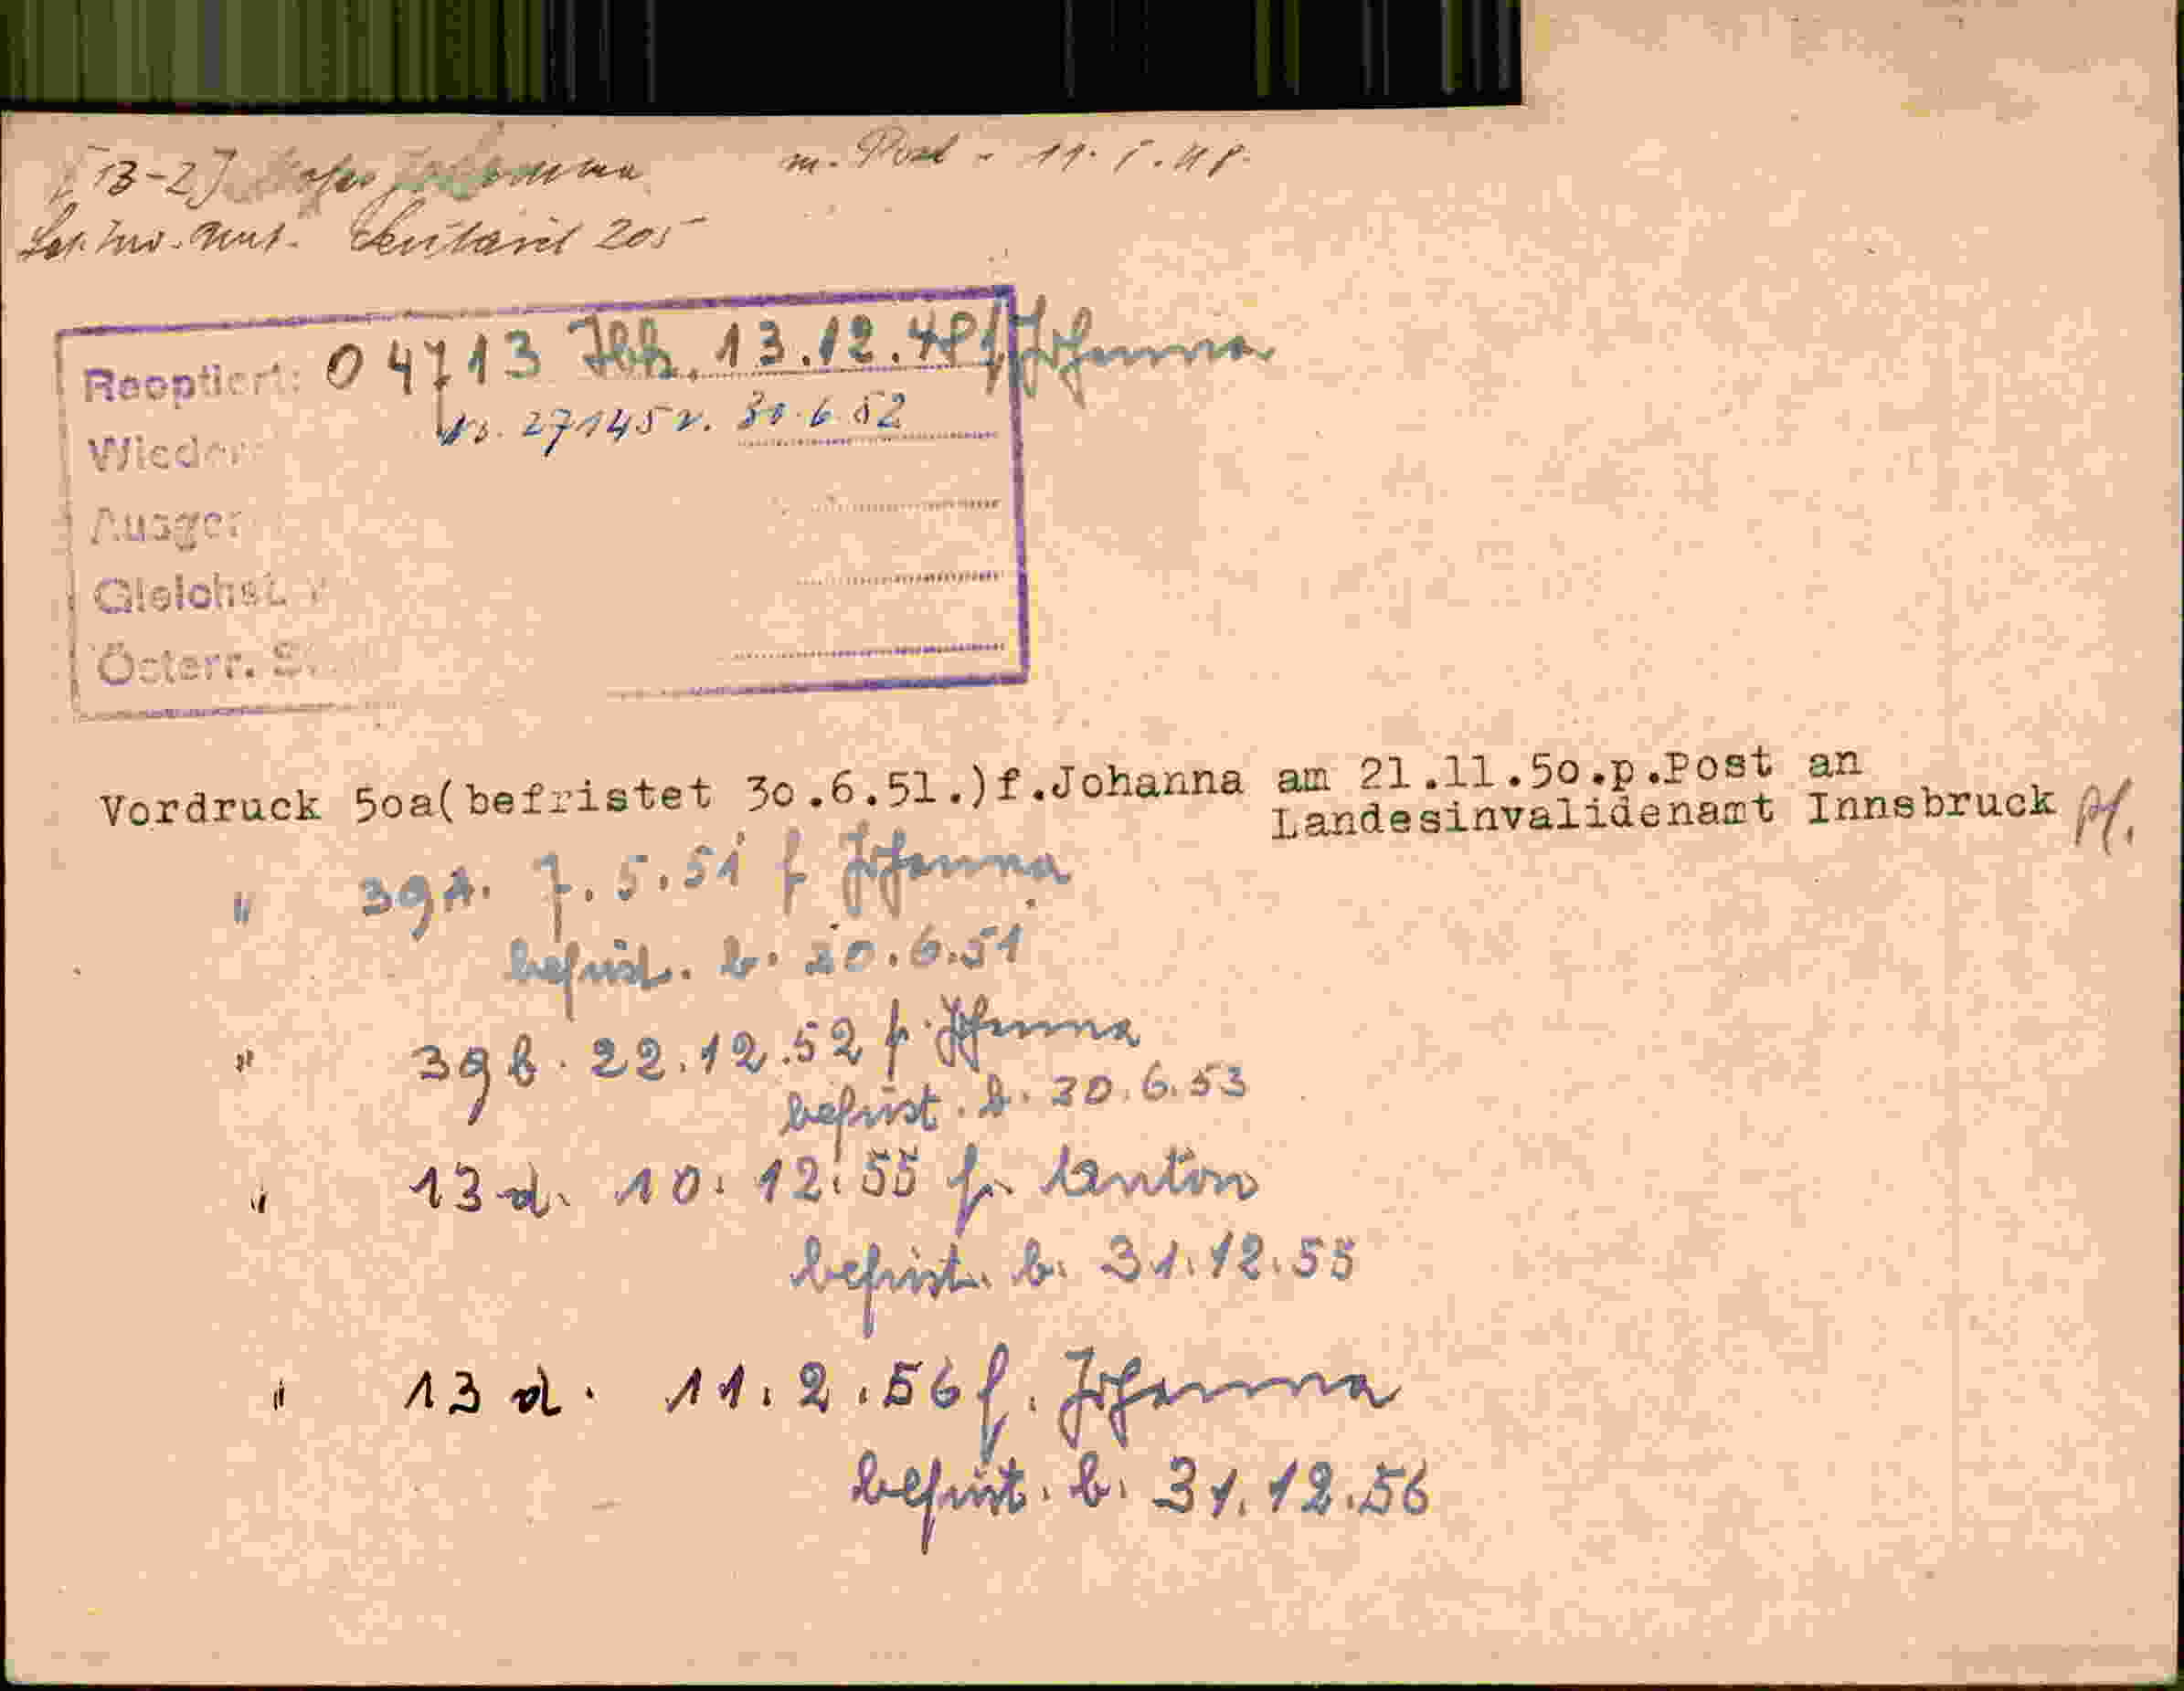 [13-2] Johanna m. Post - 11.
205
Reoptiert: 04713 Ibk. 13.12.48 f Johanna
Wieder
27145 v. 30.6.52
Ausger
Gleichst.
Österr. S.
Vordruck 50a(befristet 30.6.51.)f.Johanna am 21.11.50.p.Post an
Landesinvalidenamt Innsbruck
" 39a. 7.5.51 f Johanna
befrist. b. 30.6.51
" 39b. 22.12.52 f. Johanna
befrist. b. 30.6.53
" 13 d. 10.12.55 f. Anton
befrist. b. 31.12.55
" 13 d. 11.2.56 f. Johanna
befrist. b. 31.12.56